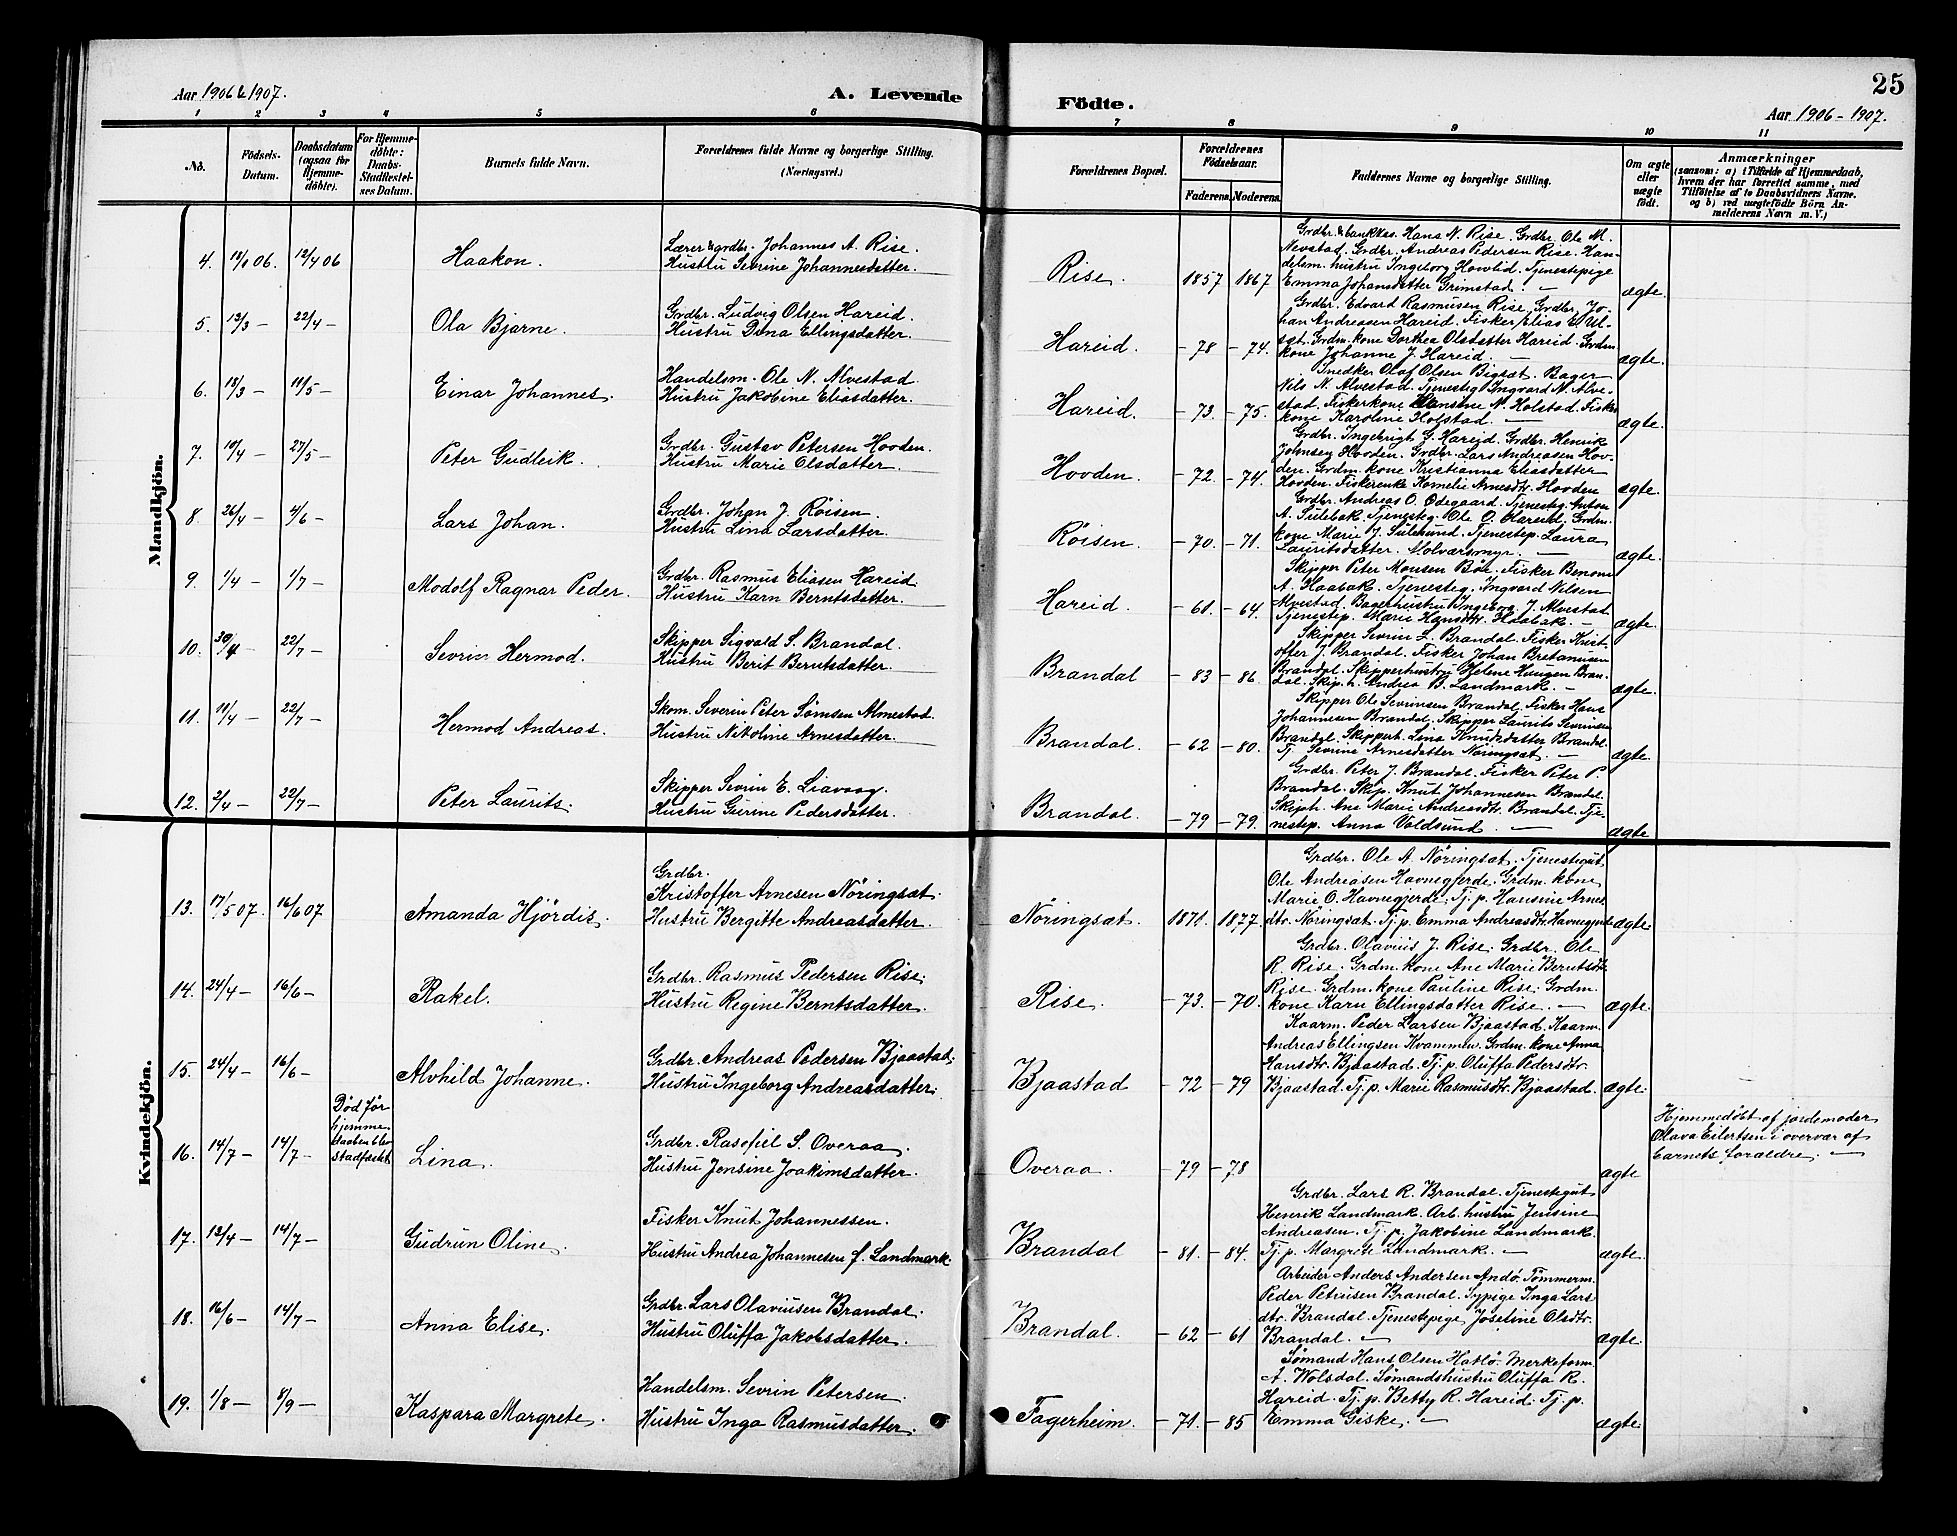 25
Aar 1906 & 1907.
A. Levende
Födte.
Aar 1906 - 1907.
1 2 3 4 5 6 7 8 9 10 11
No.
Födsels-
Datum.
Daabsdatum
(ogsaa for
Hjemme-
döbte).
For Hjemme-
döbte:
Daabs-
Stadfæstel-
ses Datum.
Barnets fulde Navn.
Forældrenes fulde Navne og borgerlige Stilling.
(Næringsvei.)
Forældrenes Bopæl.
Forældrenes
Födselsaar.
Faderens. Moderens.
Faddernes Navne og borgerlige Stilling.
Om ægte
eller
uægte
födt.
Anmærkninger
(saasom: a) i Tilfælde af Hjemmedaab,
hvem der har forrettet samme, med
Tilföielse af to Daabsvidners Navne.
og b) ved uægtefödte Börn An-
melderens Navn m. V.)
Mandkjön.
4. 11/1 06. 12/4 06
Haakon.
Lærer & grdbr. Johannes A. Rise.
Hustru Sevrine Johannesdatter.
Rise. 1857 1867
Grdbr. & bankkas. Hans N. Rise. Grdbr. Ole M.
Nevstad. Grdbr. Andreas Pedersen Rise. Han-
delsm. hustru Ingeborg Hovlid. Tjenestepige
Emma Johansdatter Grimstad. —
ægte.
5. 12/3 — 22/4 —
Ola Bjarne.
Grdbr. Ludvig Olsen Hareid.
Hustru Dina Ellingsdatter.
Hareid. — 78 — 74.
Grdbr. Edvard Rasmusen Rise. Grdbr. Jo-
han Andreasen Hareid. Fisker Elias E. Ul-
set. Grdm. kone Dorthea Olsdatter Hareid. Grdm.
kone Johanne J. Hareid. —
ægte.
6. 18/3 — 11/5 —
Einar Johannes.
Handelsm. Ole N. Alvestad.
Hustru Jakobine Eliasdatter.
Hareid. — 73. — 75.
Snedker Olaf Olsen Bigset. Bager
Nils N. Alvestad. Tjenesteg. Ingvard N. Alve-
stad. Fiskerkone Hansine N. Holstad. Fisker
kone Karoline Holstad. —
ægte.
7. 10/4 — 27/5 —
Peter Gudleik.
Grdbr. Gustav Petersen Hovden.
Hustru Marie Olsdatter.
Hovden. — 72. — 74.
Grdbr. Ingebrigt G. Hareid. Grdbr. Henrik
Johnsen Hovden. Grdbr. Lars Andreasen Hov-
den. Grdm. kone Kristianna Eliasdatter
Hovden. Fiskerenke Kornelie Arnesdtr. Hovden
ægte.
8. 26/4 — 4/6 —
Lars Johan.
Grdbr. Johan J. Röisen.
Hustru Lina Larsdatter.
Röisen. — 70. — 71.
Grdbr. Andreas O. Ödegaard. Tjenesteg. Anton
A. Sulebak. Tjenesteg. Ole O. Hareid. Grdm.
kone Marie J. Sulesund. Tjenestep. Laura
Lauritsdatter. Molværsmyr. —
ægte.
9. 1/4 — 1/7 —
Modolf Ragnar Peder.
Grdbr. Rasmus Eliasen Hareid.
Hustru Karn Berntsdatter.
Hareid. — 61. — 64.
Skipper Peter Monsen Böe. Fisker Benoni
A. Haabak. Tjenesteg. Ingvard Nilsen
Alvestad. Bagerhustru Ingeborg J. Alvestad
Tjenestep. Marie Hansdtr. Haabak. —
ægte.
10. 30/4 — 22/7 —
Sevrin Hermod.
Skipper Sigvald S. Brandal.
Hustru Berit Berntsdatter.
Brandal — 83 — 86.
Skipper Sevrin L. Brandal. Fisker Krist-
offer J. Brandal. Fisker Johan Bretanusen
Brandal. Skipperhustru Helene Haugen Bran-
dal. Skip. h. Andrea B. Landmark. —
ægte.
11. 11/4 — 22/7 —
Hermod Andreas.
Skom. Severin Peter Sömsen Almestad.
Hustru Nikoline Arnesdatter.
Brandal. — 62 — 80.
Skipper Ole Sevrinsen Brandal. Fisker Hans
Johannesen Brandal. Skipper Laurits Sevrinsen
Brandal. Skipperh. Lina Knutsdatter Brandal.
Tj. Sevrine Arnesdatter Nöringsæt. —
ægte.
12. 2/4 — 22/7 —
Peter Laurits.
Skipper Sevrin E. Liavaag.
Hustru Gurine Pedersdatter.
Brandal. — 79 — 79.
Grdbr. Peter J. Brandal. Fisker Peter P.
Brandal. Skip. Knut Johannesen Brandal.
Skiph. Ane Marie Andreasdtr. Brandal. Tje-
nestep. Anna Valdsund. —
ægte
Kvindekjön.
13. 17/5 07. 16/6 07
Amanda Hjördis.
Grdbr.
Kristoffer Arnesen Nöringsæt.
Hustru Bergitte Andreasdatter.
Nöringsæt. 1871. 1877.
Grdbr. Ole A. Nöringsæt. Tjenestegut
Ole Andreasen Havnegjerde. Grdm. kone
Marie O. Havnegjerde. Tj. p. Hansine Arnes
dtr. Nöringsæt. Tj. p. Emma Andreasdtr. Havnegjerde
ægte.
14. 24/4 — 16/6 —
Rakel.
Grdbr. Rasmus Pedersen Rise.
Hustru Regine Berntsdatter.
Rise. — 73. — 70.
Grdbr. Olavius J. Rise. Grdbr. Ole
R. Rise. Grdm. kone Ane Marie Berntsdtr.
Rise. Grdm. kone Pauline Rise. Grdm.
kone Karn Ellingsdatter Rise. —
ægte.
15. 24/4 — 16/6 —
Alvhild Johanne.
Grdbr. Andreas Pedersen Bjaastad.
Hustru Ingeborg Andreasdatter.
Bjaastad — 72 — 79
Kaarm. Peder Larsen Bjaastad. Kaarm.
Andreas Ellingsen Kvammen. Grdm. kone Anna
Hansdtr. Bjaastad. Tj. p. Oluffa Pedersdtr.
Bjaastad. Tj. p. Marie Rasmusdtr. Bjaastad.
ægte.
16. 14/7 — 14/7 —
Död för
hjemme
daaben blev
stadfæstet
Lina.
Grdbr. Rasefiel S. Overaa.
Hustru Jensine Joakimsdatter.
Overaa. — 79 — 78
ægte
Hjemmedöbt af jordemoder
Olava Eilertsen i overvær af
barnets foræeldre. —
17. 13/4 — 14/7 —
Gudrun Oline.
Fisker Knut Johannessen.
Hustru Andrea Johannesen f. Landmark.
Brandal — 81. — 84.
Grdbr. Lars R. Brandal. Tjenestegut
Henrik Landmark. Arb. hustru Jensine
Andreasen. Tj. p. Jakobine Landmark.
Tj. p. Margrete Landmark. —
ægte.
18. 16/6 — 14/7 —
Anna Elise.
Grdbr. Lars Olaviusen Brandal.
Hustru Oluffa Jakobsdatter.
Brandal. — 62 — 61
Arbeider Anders Andersen Andö. Tömmerm.
Peder Petrusen Brandal. Sypige Inga Lars
dtr. Brandal. Tjenestepige Joseline Olsdtr.
Brandal. —
ægte.
19. 1/8 — 8/9 —
Kaspara Margrete.
Handelsm. Sevrin Petersen.
Hustru Inga Rasmusdatter.
Fagerheim. — 71. — 85
Sömand Hans Olsen Hatlö. Merkeform.
A. Wolsdal. Sömandshustru Oluffa R.
Hareid. Tj. p. Betty R. Hareid. Tj. p.
Emma Giske. —
ægte.